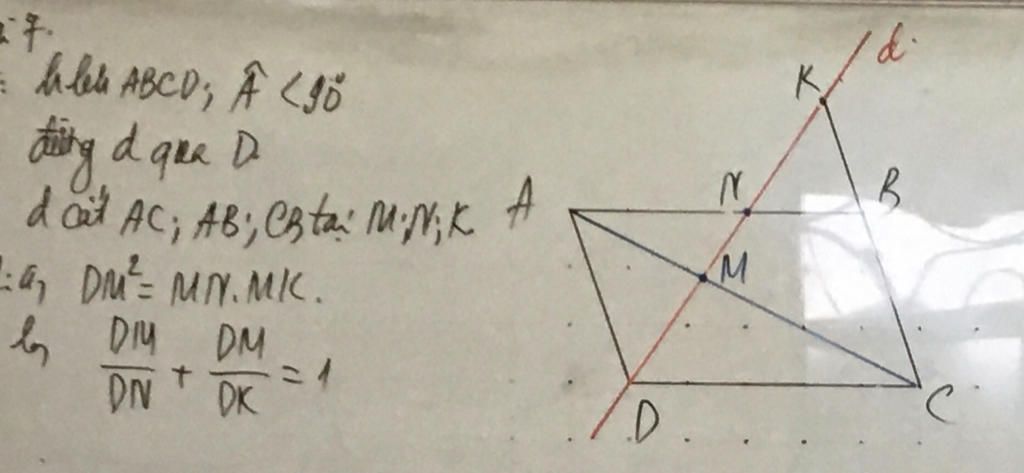 7.
hbh ABCD; Â < 90°
đường d qua D
d cắt AC; AB; CB tại M; N; K
a, DM² = MN. MK.
b, DM/DN + DM/DK = 1
d
K
A
N
B
M
D
C